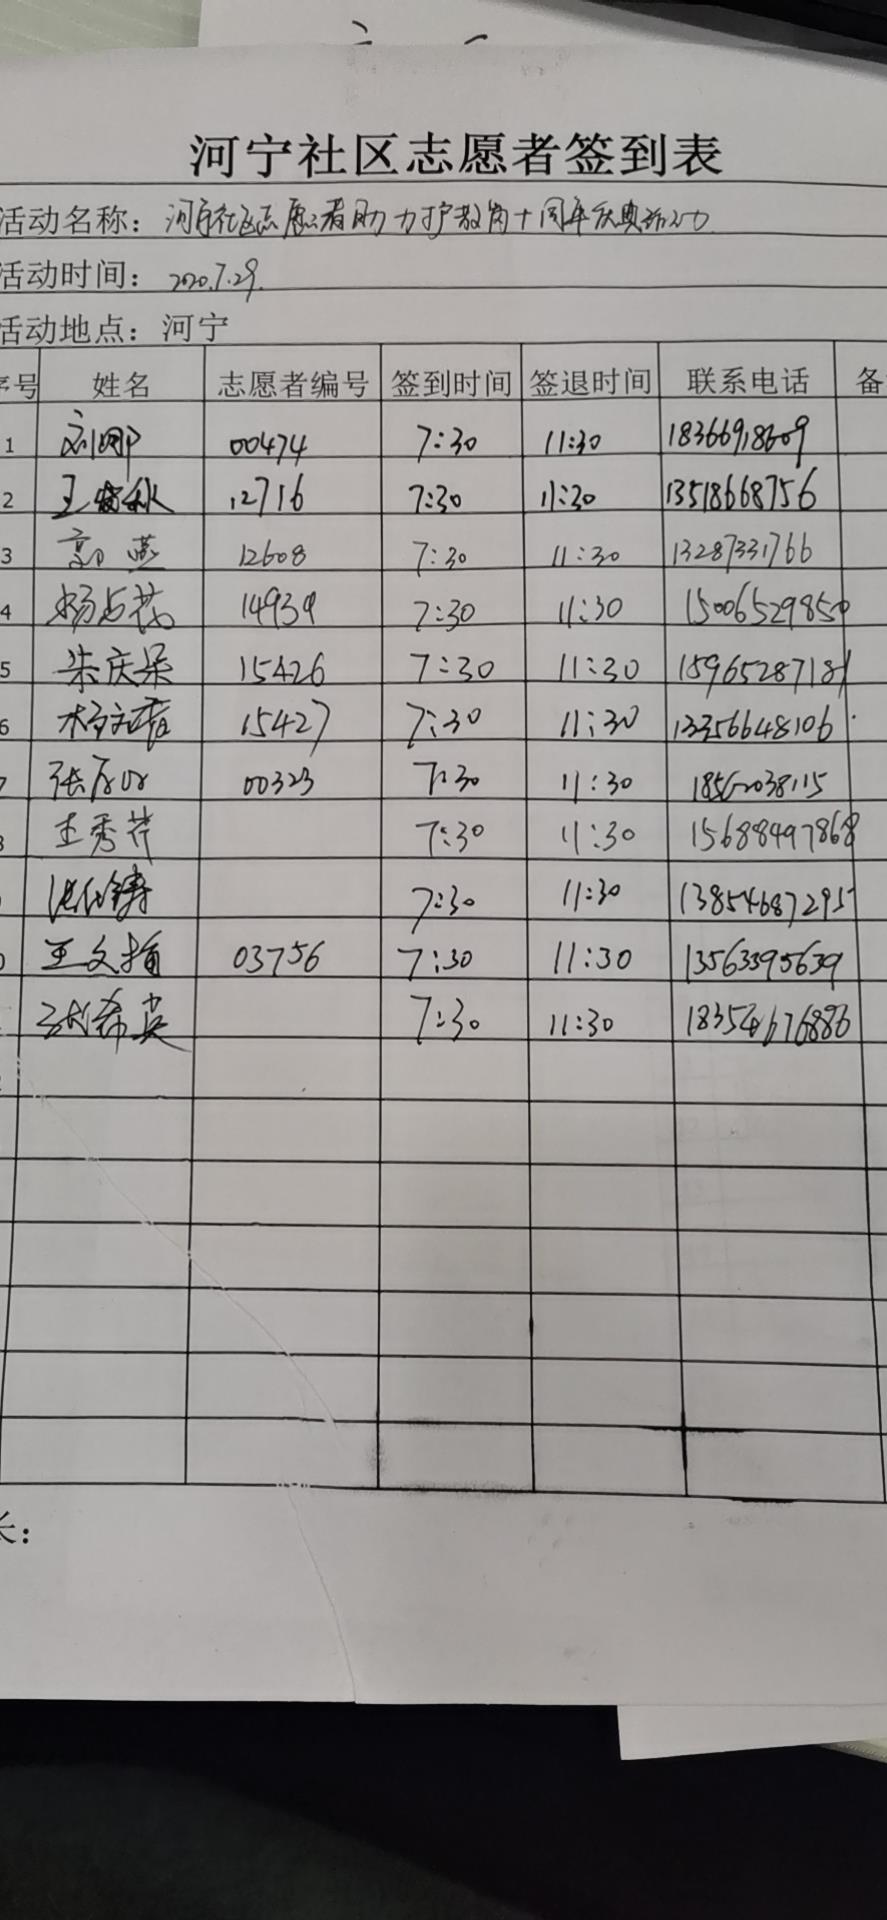 河宁社区志愿者签到表
活动名称：河宁社区志愿者助力护教岗十周年庆典活动
活动时间：2020.7.29.
活动地点：河宁
序号 姓名 志愿者编号 签到时间 签退时间 联系电话 备
1 刘娜 00474 7:30 11:30 18366918609
2 王 秋 12716 7:30 11:30 13518668756
3 郭燕 12608 7:30 11:30 13287331766
4 杨 花 14939 7:30 11:30 15006529850
5 朱庆朵 15426 7:30 11:30 15965287181
6 杨文君 15427 7:30 11:30 13356648106
7 张 00323 7:30 11:30 18562038115
8 王秀芹 7:30 11:30 15688497868
铸 7:30 11:30 13854687295
0 王文梅 03756 7:30 11:30 13563395639
希英 7:30 11:30 18354676886
长：